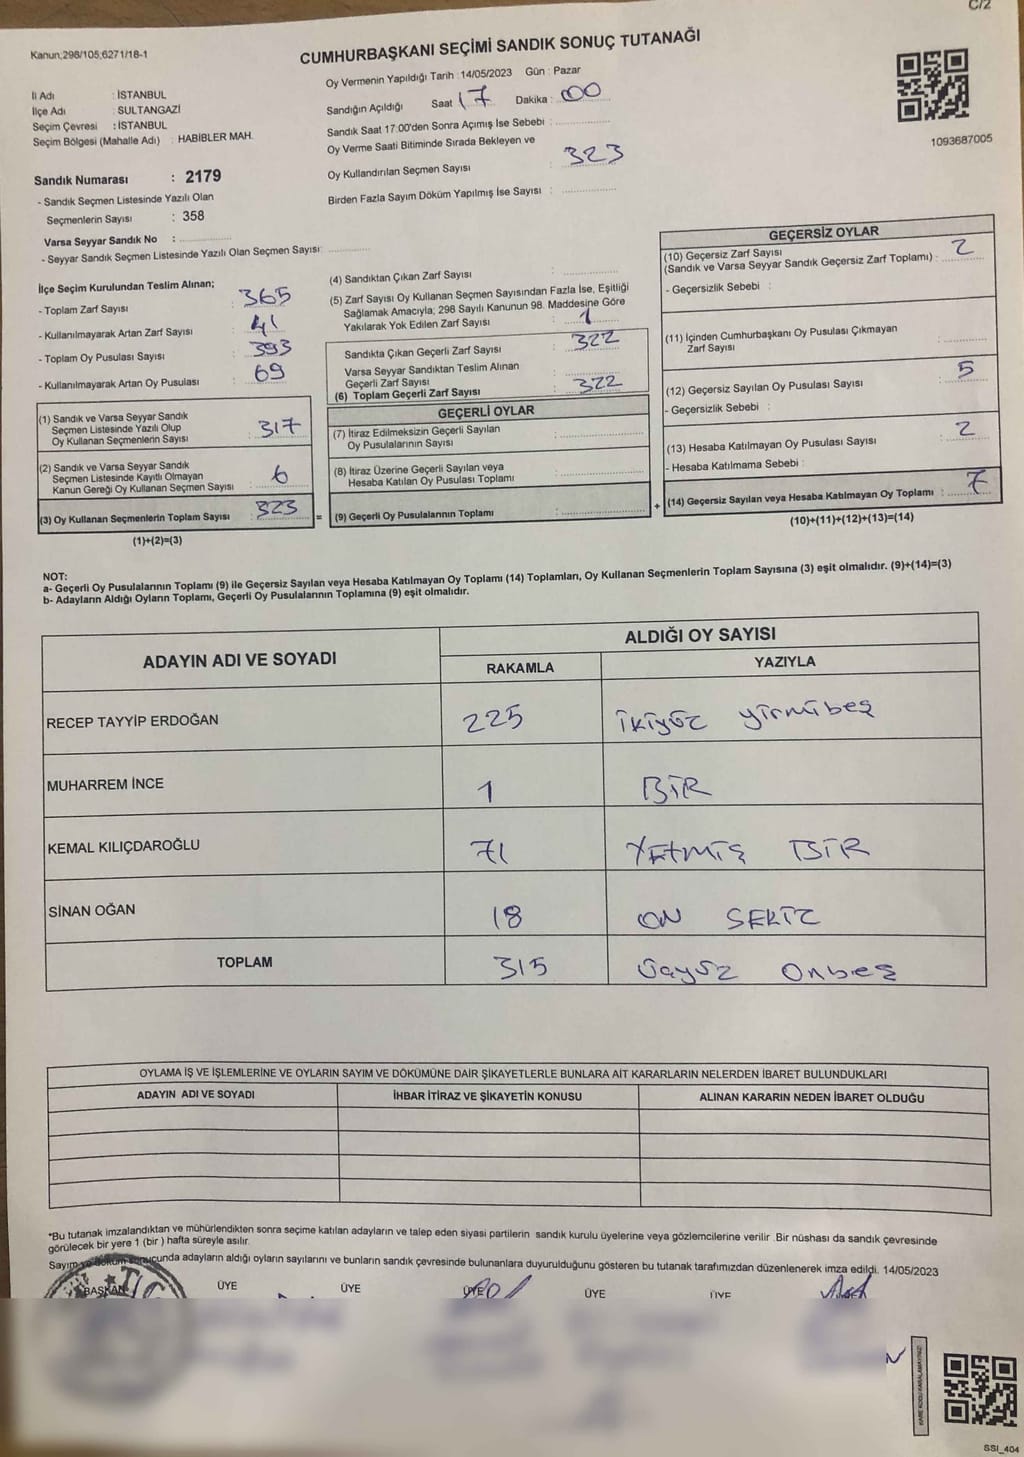 C/2
Kanun;298/105;6271/18-1
CUMHURBAŞKANI SEÇİMİ SANDIK SONUÇ TUTANAĞI
Oy Vermenin Yapıldığı Tarih : 14/05/2023 Gün : Pazar
İl Adı : İSTANBUL
İlçe Adı : SULTANGAZİ
Seçim Çevresi : İSTANBUL
Seçim Bölgesi (Mahalle Adı) : HABİBLER MAH.
Sandığın Açıldığı Saat 17 Dakika : 00
Sandık Saat 17:00'den Sonra Açımış İse Sebebi :
Oy Verme Saati Bitiminde Sırada Bekleyen ve
Oy Kullandırılan Seçmen Sayısı : 323
Birden Fazla Sayım Döküm Yapılmış İse Sayısı :
1093687005
Sandık Numarası : 2179
- Sandık Seçmen Listesinde Yazılı Olan
Seçmenlerin Sayısı : 358
Varsa Seyyar Sandık No :
- Seyyar Sandık Seçmen Listesinde Yazılı Olan Seçmen Sayısı:
İlçe Seçim Kurulundan Teslim Alınan;
- Toplam Zarf Sayısı : 365
- Kullanılmayarak Artan Zarf Sayısı : 41
- Toplam Oy Pusulası Sayısı : 393
- Kullanılmayarak Artan Oy Pusulası : 69
(1) Sandık ve Varsa Seyyar Sandık
Seçmen Listesinde Yazılı Olup
Oy Kullanan Seçmenlerin Sayısı : 317
(2) Sandık ve Varsa Seyyar Sandık
Seçmen Listesinde Kayıtlı Olmayan
Kanun Gereği Oy Kullanan Seçmen Sayısı : 6
(3) Oy Kullanan Seçmenlerin Toplam Sayısı : 323
(1)+(2)=(3)
(4) Sandıktan Çıkan Zarf Sayısı :
(5) Zarf Sayısı Oy Kullanan Seçmen Sayısından Fazla İse, Eşitliği
Sağlamak Amacıyla; 298 Sayılı Kanunun 98. Maddesine Göre
Yakılarak Yok Edilen Zarf Sayısı : 1
Sandıkta Çıkan Geçerli Zarf Sayısı : 322
Varsa Seyyar Sandıktan Teslim Alınan
Geçerli Zarf Sayısı :
(6) Toplam Geçerli Zarf Sayısı : 322
GEÇERLİ OYLAR
(7) İtiraz Edilmeksizin Geçerli Sayılan
Oy Pusulalarının Sayısı :
(8) İtiraz Üzerine Geçerli Sayılan veya
Hesaba Katılan Oy Pusulası Toplamı :
= (9) Geçerli Oy Pusulalarının Toplamı :
GEÇERSİZ OYLAR
(10) Geçersiz Zarf Sayısı
(Sandık ve Varsa Seyyar Sandık Geçersiz Zarf Toplamı) : 2
- Geçersizlik Sebebi :
(11) İçinden Cumhurbaşkanı Oy Pusulası Çıkmayan
Zarf Sayısı :
(12) Geçersiz Sayılan Oy Pusulası Sayısı : 5
- Geçersizlik Sebebi :
(13) Hesaba Katılmayan Oy Pusulası Sayısı : 2
- Hesaba Katılmama Sebebi :
+ (14) Geçersiz Sayılan veya Hesaba Katılmayan Oy Toplamı : 7
(10)+(11)+(12)+(13)=(14)
NOT:
a- Geçerli Oy Pusulalarının Toplamı (9) ile Geçersiz Sayılan veya Hesaba Katılmayan Oy Toplamı (14) Toplamları, Oy Kullanan Seçmenlerin Toplam Sayısına (3) eşit olmalıdır. (9)+(14)=(3)
b- Adayların Aldığı Oyların Toplamı, Geçerli Oy Pusulalarının Toplamına (9) eşit olmalıdır.
ADAYIN ADI VE SOYADI ALDIĞI OY SAYISI
RAKAMLA YAZIYLA
RECEP TAYYİP ERDOĞAN 225 ikiyüz yirmibeş
MUHARREM İNCE 1 BİR
KEMAL KILIÇDAROĞLU 71 YETMİŞ BİR
SİNAN OĞAN 18 ON SEKİZ
TOPLAM 315 üçyüz onbeş
OYLAMA İŞ VE İŞLEMLERİNE VE OYLARIN SAYIM VE DÖKÜMÜNE DAİR ŞİKAYETLERLE BUNLARA AİT KARARLARIN NELERDEN İBARET BULUNDUKLARI
ADAYIN ADI VE SOYADI İHBAR İTİRAZ VE ŞİKAYETİN KONUSU ALINAN KARARIN NEDEN İBARET OLDUĞU
*Bu tutanak imzalandıktan ve mühürlendikten sonra seçime katılan adayların ve talep eden siyasi partilerin sandık kurulu üyelerine veya gözlemcilerine verilir .Bir nüshası da sandık çevresinde
görülecek bir yere 1 (bir ) hafta süreyle asılır.
Sayım ve döküm sonucunda adayların aldığı oyların sayılarını ve bunların sandık çevresinde bulunanlara duyurulduğunu gösteren bu tutanak tarafımızdan düzenlenerek imza edildi. 14/05/2023
BAŞKAN ÜYE ÜYE ÜYE ÜYE ÜYE
KARE KODU KARALAMAYINIZ!
SSI_404